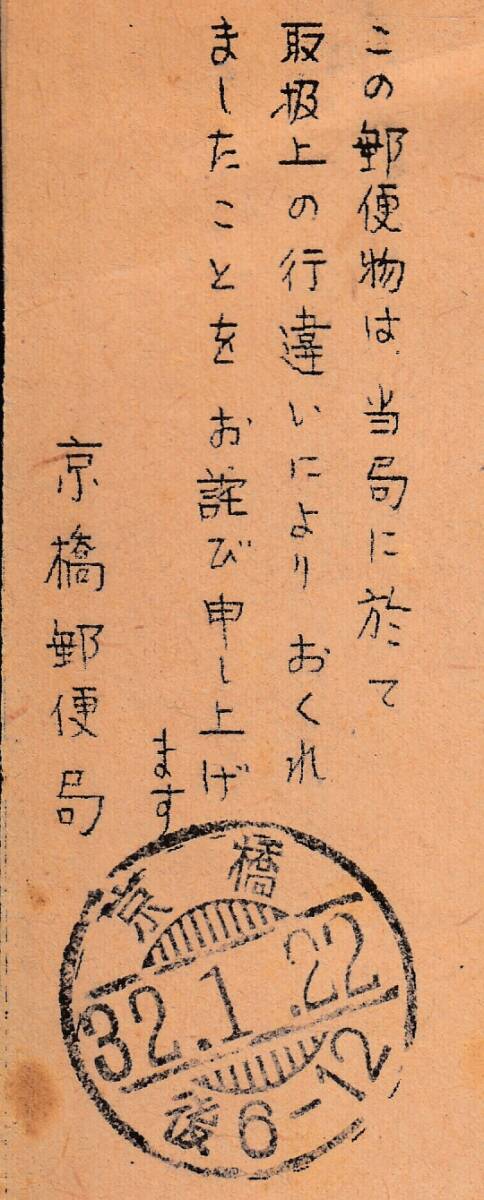 この郵便物は当局に於て
取扱上の行違いにより おくれ
ましたことをお詫び申し上げ
ます
京橋郵便局
京橋
32.1.22
後6-12